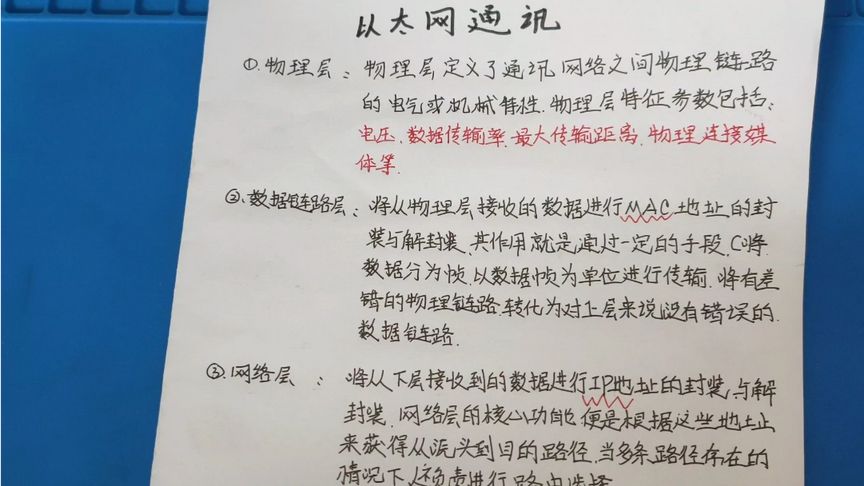 以太网通讯
①.物理层：物理层定义了通讯网络之间物理链路
的电气或机械特性.物理层特征参数包括：
电压.数据传输率.最大传输距离.物理连接媒
体等.
②.数据链路层：将从物理层接收的数据进行MAC地址的封
装与解封装.其作用就是通过一定的手段.(将
数据分为帧.以数据帧为单位进行传输.将有差
错的物理链路.转化为对上层来说没有错误的.
数据链路.
③.网络层：将从下层接收到的数据进行IP地址的封装.与解
封装.网络层的核心功能.便是根据这些地址
来获得从源头到目的路径.当多条路径存在的
情况下.还负责进行路由选择